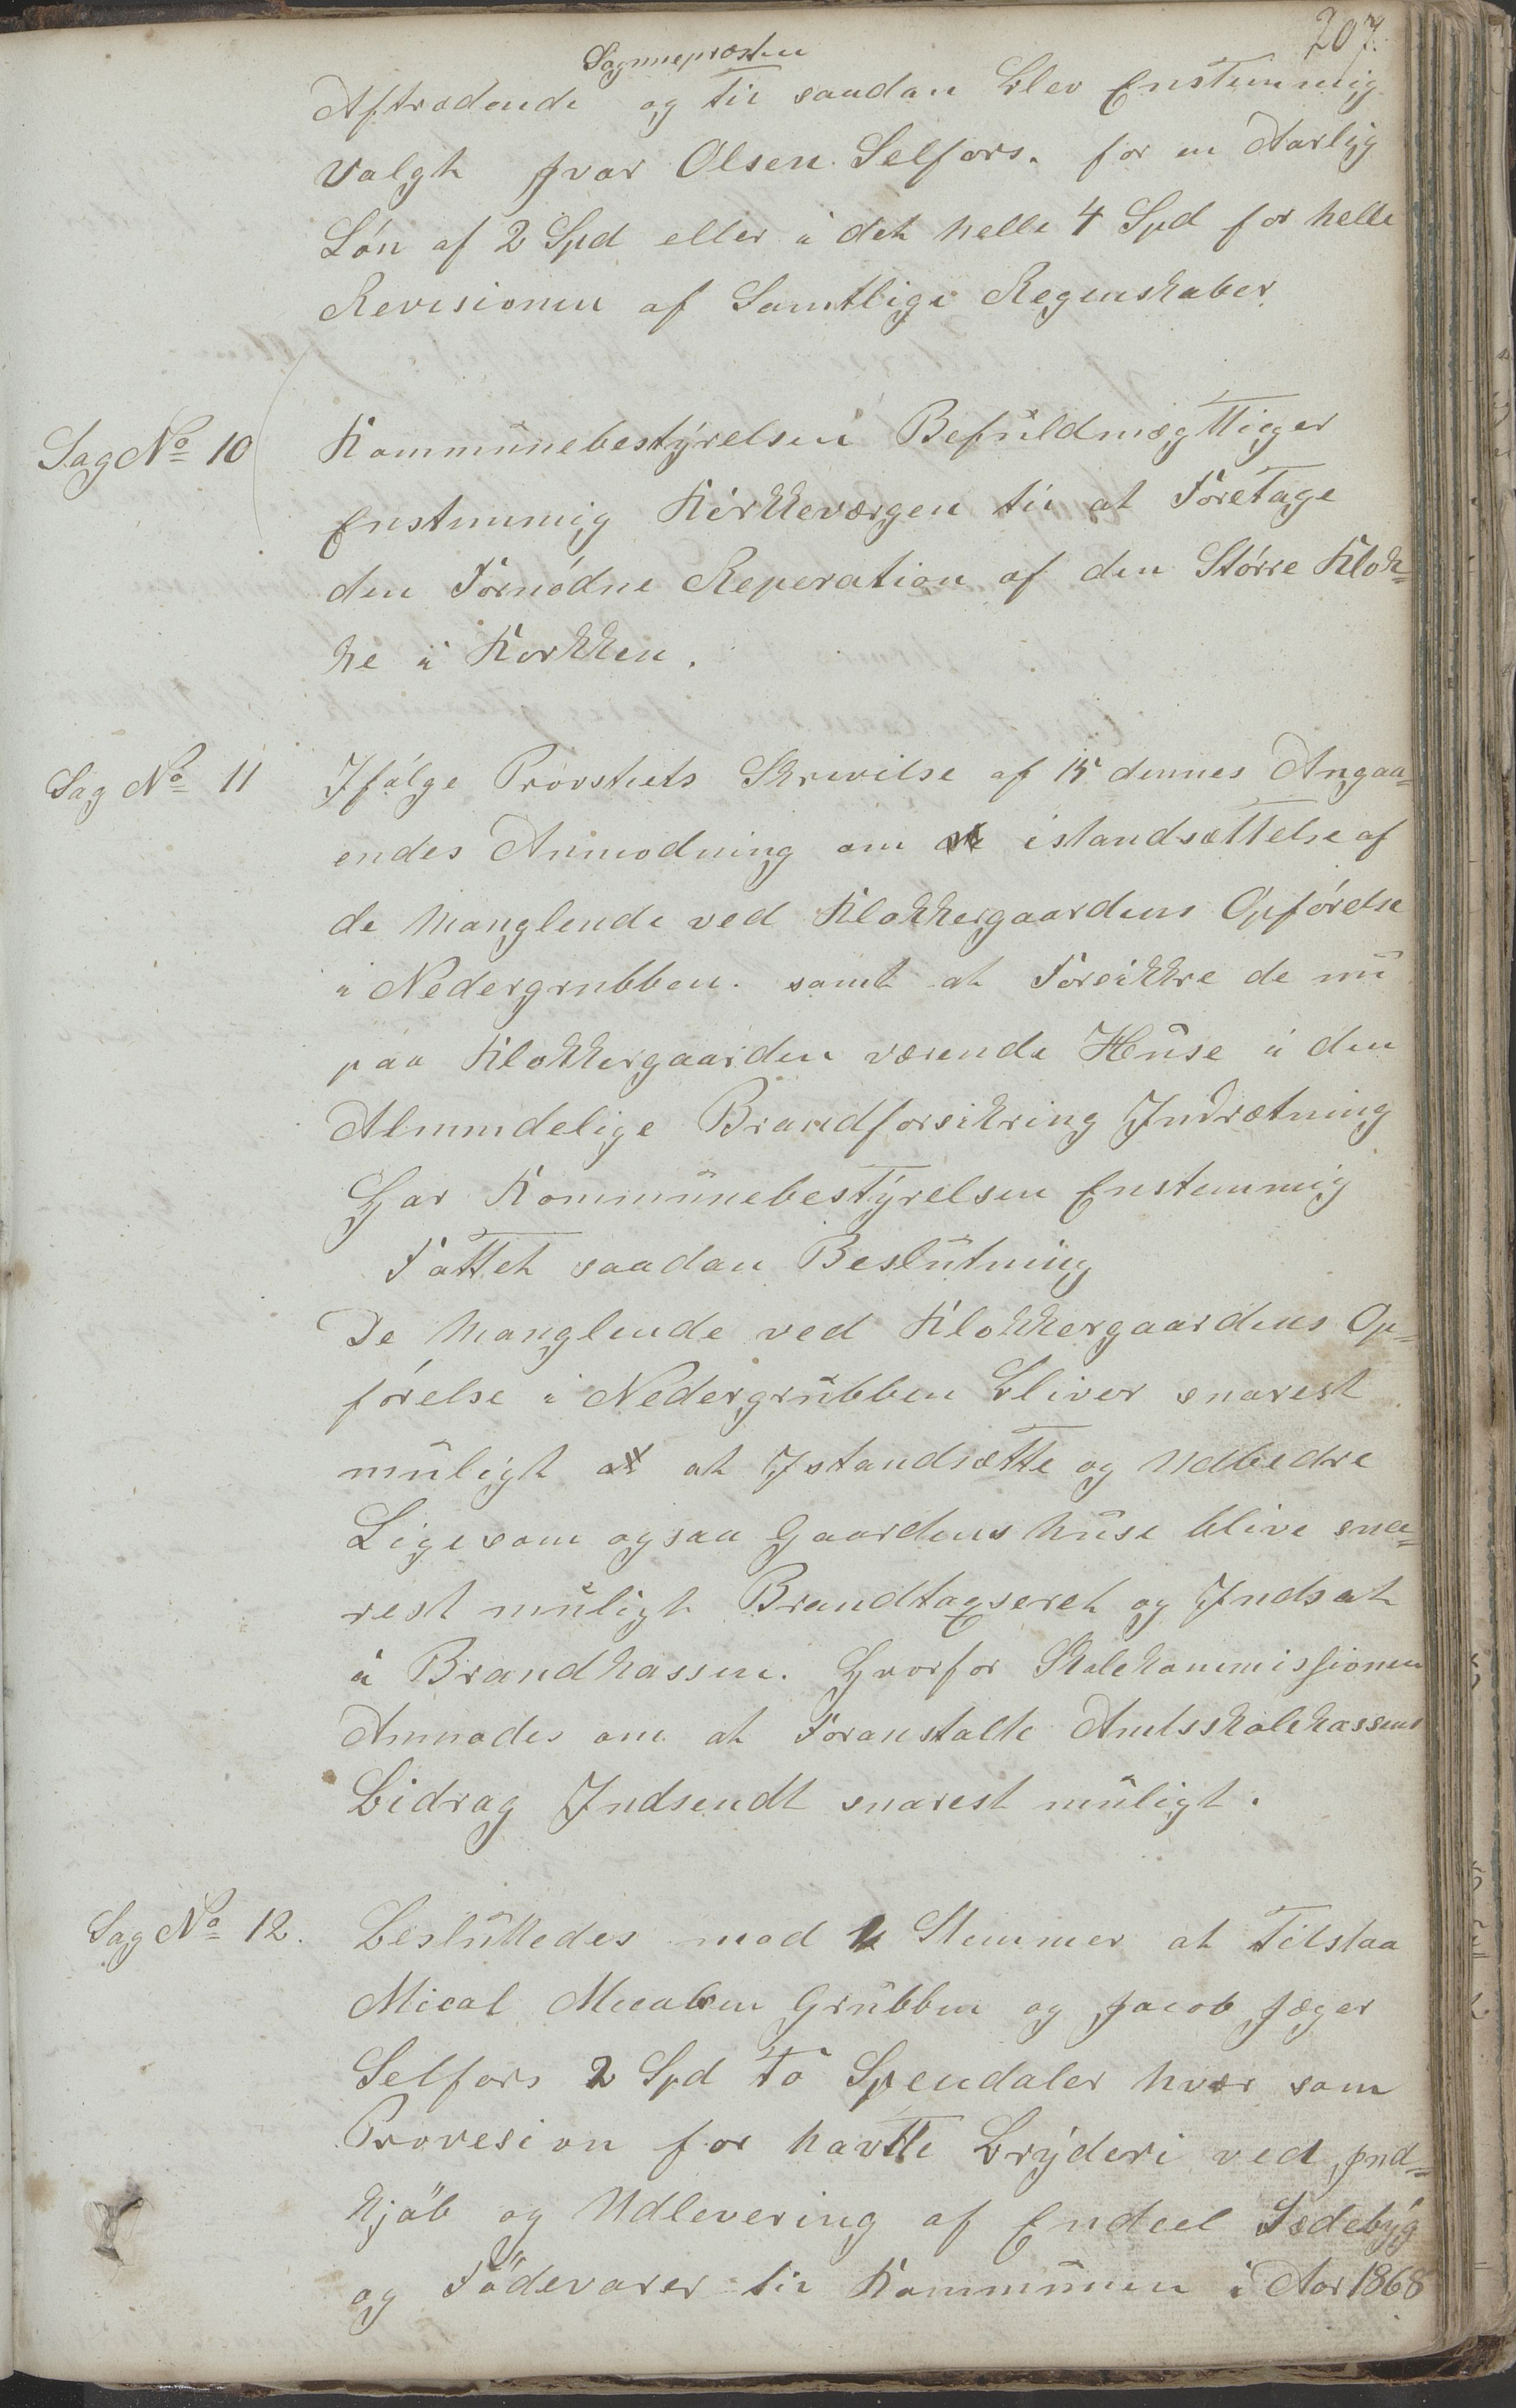 207.
Sognnepræsten
Aftrædende og til saadan blev Enstemmig
Valgt Ivar Olsen Selfors. for en Aarlig
Løn af 2 Spd eller i det helle 4 Spd for helle
Revisionen af Samtlige Regenskaber
Sag No 10 Kommunebestyrelsen Befuldmægttiger
Enstemmig Kirkkeværgen til at Foretage
den Fornødne Reperation af den Større Klok=
ke i Korkken.
Sag No 11 Ifølge Provstiets Skrivelse af 15 dennes Angaa=
endes Anmodning om istandsættelse af
de Manglende ved Klokkergaardens Opførelse
i Nedergrubben. samt at Forsikkre de nu
paa Klokkergaarden værende Huse i den
Almindelige Brandforsikring Indrætning
Har Kommunebestyrelsen Enstemmig
Fattet saadan Beslutning
De Manglende ved Klokkergaardens Op=
førelse i Nedergrubben bliver snarest
muligt at Istandsætte og Udbedre
Ligesom ogsaa Gaardens huse blive sna=
rest muligt Brandtagseret og Indsat
i Brandkassen. Hvorfor Skolekommissionen
Anmodes om at Foranstalte Amtsskolekassens
Bidrag Indsendt snarest muligt.
Sag No 12. Besluttedes mod Stemmer at Tilstaa
Mical Micalsen Grubben og Jacob Jæger
Selfors 2 Spd To Spendaler hver som
Provesion for havtte Bryderi ved Ind=
kjøb og Udlevering af Endeel Sædebyg
og Födevarer til Kommunen i Aar 1868